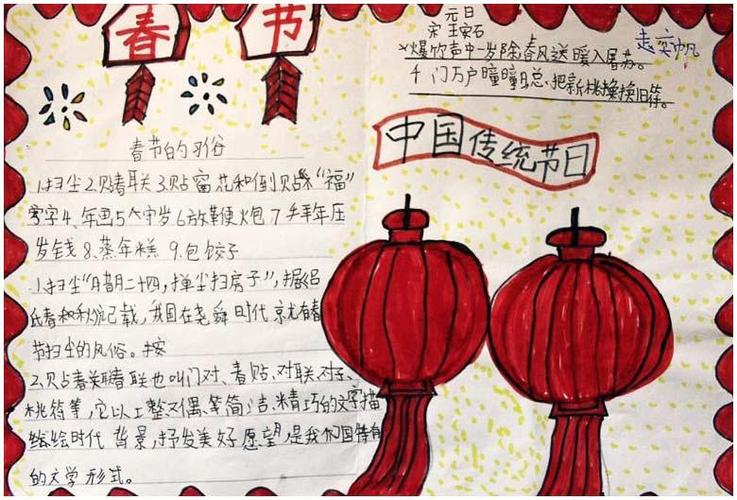 春节
元日
宋 王安石
爆竹声中一岁除春风送暖入屠苏。
千门万户曈曈日总把新桃换换旧符。
赵奕帆
中国传统节日
春节的习俗
1.扫尘2.贴春联3.贴窗花和倒贴"福"
字4、年画5守岁6放鞭炮7拜年压
岁钱8、蒸年糕 9.包饺子
1.扫尘"腊月二十四,掸尘扫房子",据吕
氏春秋记载,我国在尧舜时代就有春
节扫尘的风俗。按
2、贴春联春联也叫门对、春贴、对联、对子、
桃符等,它以工整对偶、简洁、精巧的文字描
绘时代背景,抒发美好愿望,是我们国特有
的文学形式。